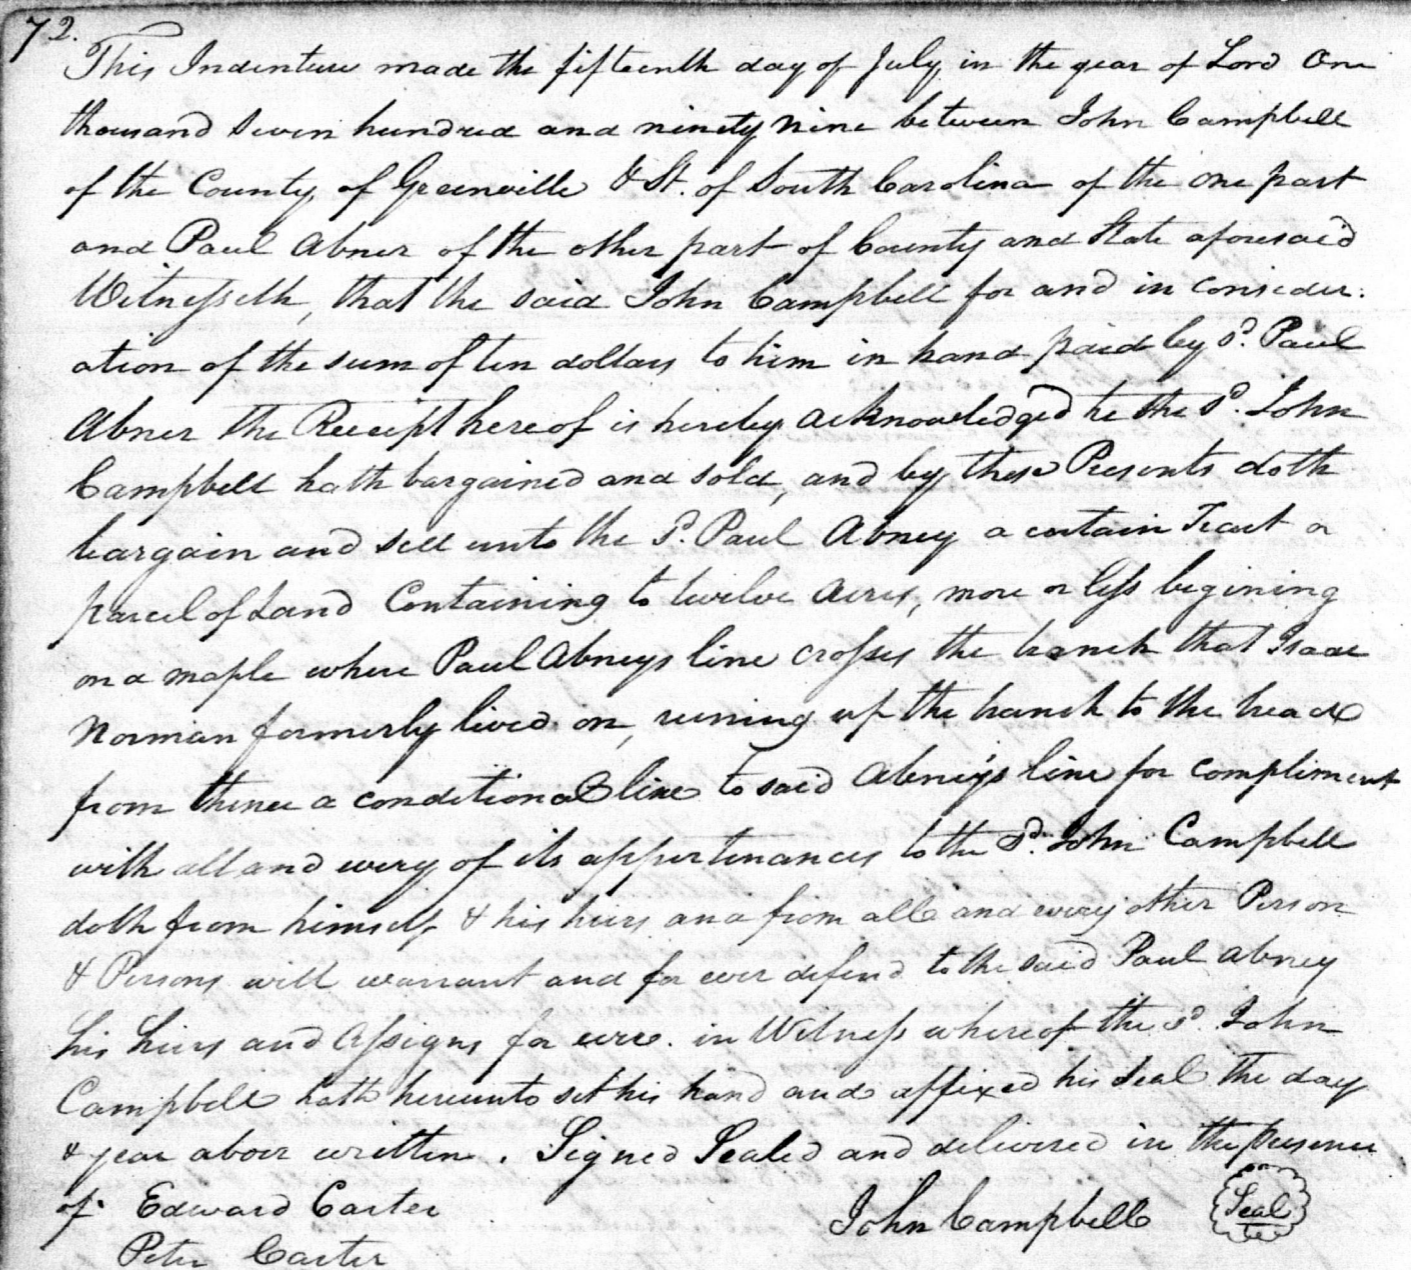 72.
This Indenture made the fifteenth day of July in the year of Lord One
thousand seven hundred and ninety nine between John Campbell
of the County of Greenville & St. of South Carolina of the one part
and Paul Abner of the other part of County and State aforesaid
Witnesseth, that the said John Campbell for and in consider:
ation of the sum of ten dollars to him in hand paid by sd. Paul
Abner the Receipt hereof is hereby acknowledged he the sd. John
Campbell hath bargained and sold, and by these Presents doth
bargain and sell unto the sd. Paul Abney a certain Tract or
parcel of Land Containing to twelve Acres, more or less begining
on a maple where Paul Abneys line crosses the branch that Isaac
Norman formerly lived on, runing up the branch to the head
from thence a conditional line to said Abney's line for compliment
with all and every of its appurtenances to the sd. John Campbell
doth from himself & his heirs and from all and every other Person
& Persons will warrant and for ever defend to the said Paul Abney
his heirs and assigns for ever. in Witness whereof the sd. John
Campbell hath hereunto set his hand and affixed his Seal The day
& year above written. Signed Sealed and delivered in the presence
of Edward Carter
John Campbell Seal
Peter Carter